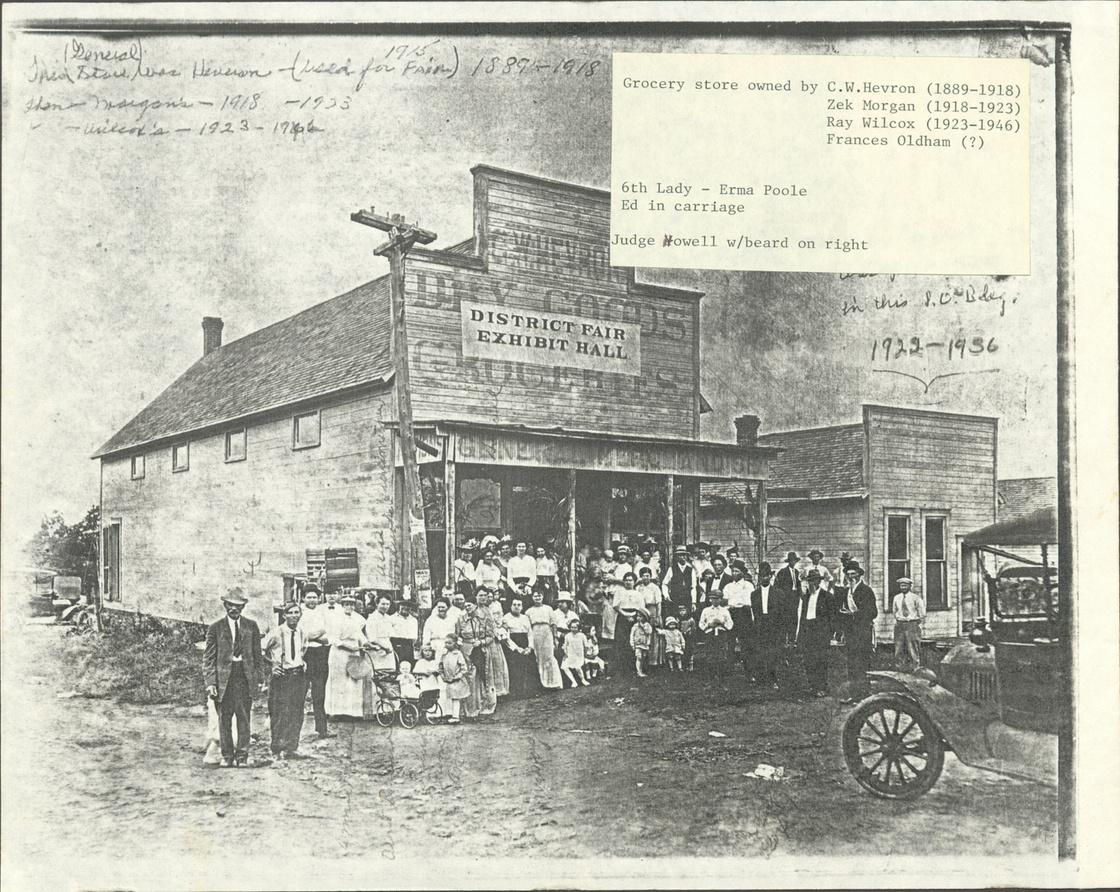 (General)
This Store was Hevron - (used for Fair) 1889-1918
1915
Then Morgan's - 1918 - 1923
" - Wilcox's - 1923 - 1946
Grocery store owned by C.W.Hevron (1889-1918)
Zek Morgan (1918-1923)
Ray Wilcox (1923-1946)
Frances Oldham (?)
6th Lady - Erma Poole
Ed in carriage
Judge Howell w/beard on right
in this P.O. Bldg.
1922-1936
DRY GOODS
DISTRICT FAIR
EXHIBIT HALL
GROCERIES